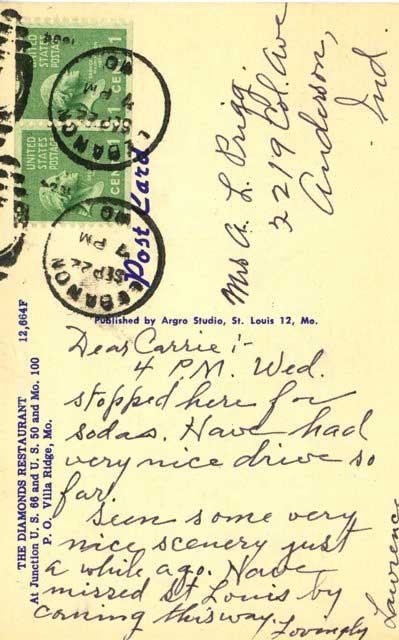 UNITED
STATES
POSTAGE
1
CENT
UNITED
STATES
POSTAGE
1
CENT
LEBANON
SEP 22
4 PM
MO
LEBANON
SEP 22
4 PM
MO
Post Card
Mrs A. L. Prigg
2219 Col. Ave
Anderson,
Ind.
Published by Argro Studio, St. Louis 12, Mo.
THE DIAMONDS RESTAURANT 12,664F
At Junction U. S. 66 and U. S. 50 and Mo. 100
P. O. Villa Ridge, Mo.
Dear Carrie :-
4 P.M. Wed.
stopped here for
sodas. Have had
very nice drive so
far.
Seen some very
nice scenery just
a while ago. Have
missed St Louis by
coming this way.
Lovingly
Lawrence